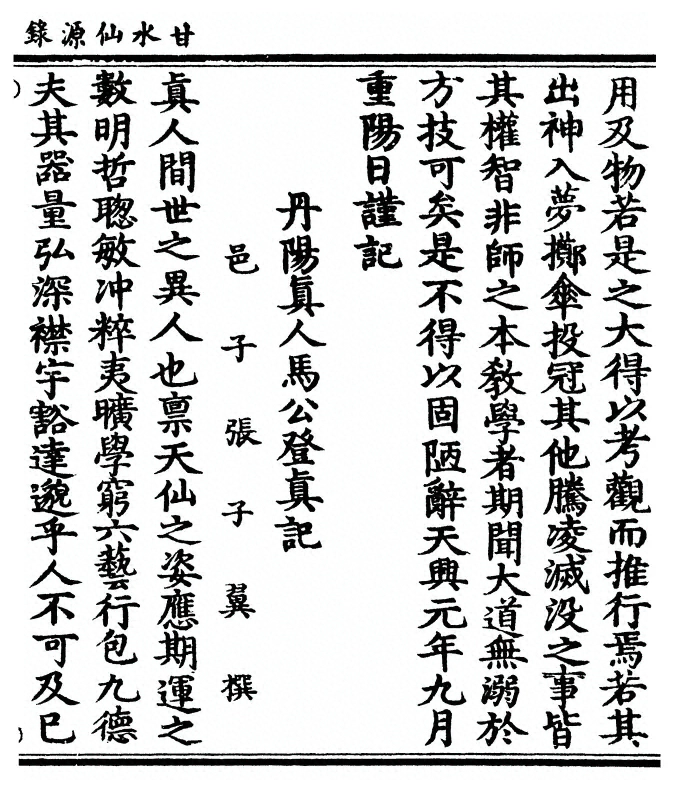 甘水仙源錄
用及物若是之大得以考觀而推行焉若其
出神入夢擲傘投冠其他騰凌滅没之事皆
其權智非師之本教學者期聞大道無溺於
方技可矣是不得以固陋辭天興元年九月
重陽日謹記
丹陽眞人馬公登眞記
邑子張子翼撰
眞人間世之異人也禀天仙之姿應期運之
數明哲聦敏冲粹夷曠學窮六藝行包九德
夫其器量弘深襟宇豁達邈乎人不可及巳